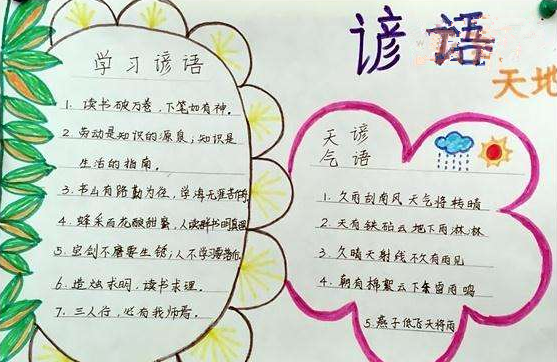 谚语
天地
学习谚语
1. 读书破万卷，下笔如有神。
2. 劳动是知识的源泉；知识是
生活的指南。
3. 书山有路勤为径，学海无涯苦作
4. 蜂采百花酿甜蜜，人读群书明真理
5. 宝剑不磨要生锈；人不学习要落伍
6. 造烛求明，读书求理。
7. 三人行，必有我师焉。
天气
谚语
1. 久雨刮南风天气将转晴
2. 天有铁砧云地下雨淋淋
3. 久晴天射线不久有雨见
4. 朝有棉絮云下午雷雨鸣
5. 燕子低飞天将雨